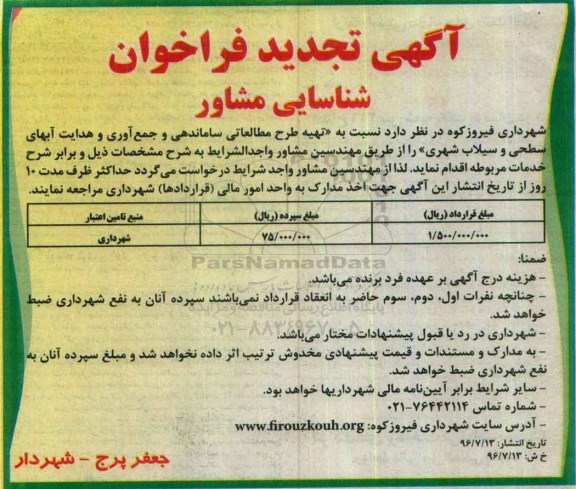 آگهی تجدید فراخوان
شناسایی مشاور
شهرداری فیروزکوه در نظر دارد نسبت به «تهیه طرح مطالعاتی ساماندهی و جمع‌آوری و هدایت آبهای
سطحی و سیلاب شهری» را از طریق مهندسین مشاور واجدالشرایط به شرح مشخصات ذیل و برابر شرح
خدمات مربوطه اقدام نماید. لذا از مهندسین مشاور واجد شرایط درخواست می‌گردد حداکثر ظرف مدت ۱۰
روز از تاریخ انتشار این آگهی جهت اخذ مدارک به واحد امور مالی (قراردادها) شهرداری مراجعه نمایند.
مبلغ قرارداد (ریال) مبلغ سپرده (ریال) منبع تامین اعتبار
۱/۵۰۰/۰۰۰/۰۰۰ ۷۵/۰۰۰/۰۰۰ شهرداری
ضمنا:
ParsNamadData
- هزینه درج آگهی بر عهده فرد برنده می‌باشد.
- چنانچه نفرات اول، دوم، سوم حاضر به انعقاد قرارداد نمی‌باشند سپرده آنان به نفع شهرداری ضبط
خواهد شد.
- شهرداری در رد یا قبول پیشنهادات مختار می‌باشد.
- به مدارک و مستندات و قیمت پیشنهادی مخدوش ترتیب اثر داده نخواهد شد و مبلغ سپرده آنان به
نفع شهرداری ضبط خواهد شد.
- سایر شرایط برابر آیین‌نامه مالی شهرداریها خواهد بود.
- شماره تماس ۷۶۴۴۲۱۱۴-۰۲۱
- آدرس سایت شهرداری فیروزکوه: www.firouzkouh.org
تاریخ انتشار: ۹۶/۷/۱۳
خ ش: ۹۶/۷/۱۳
جعفر پرج - شهردار